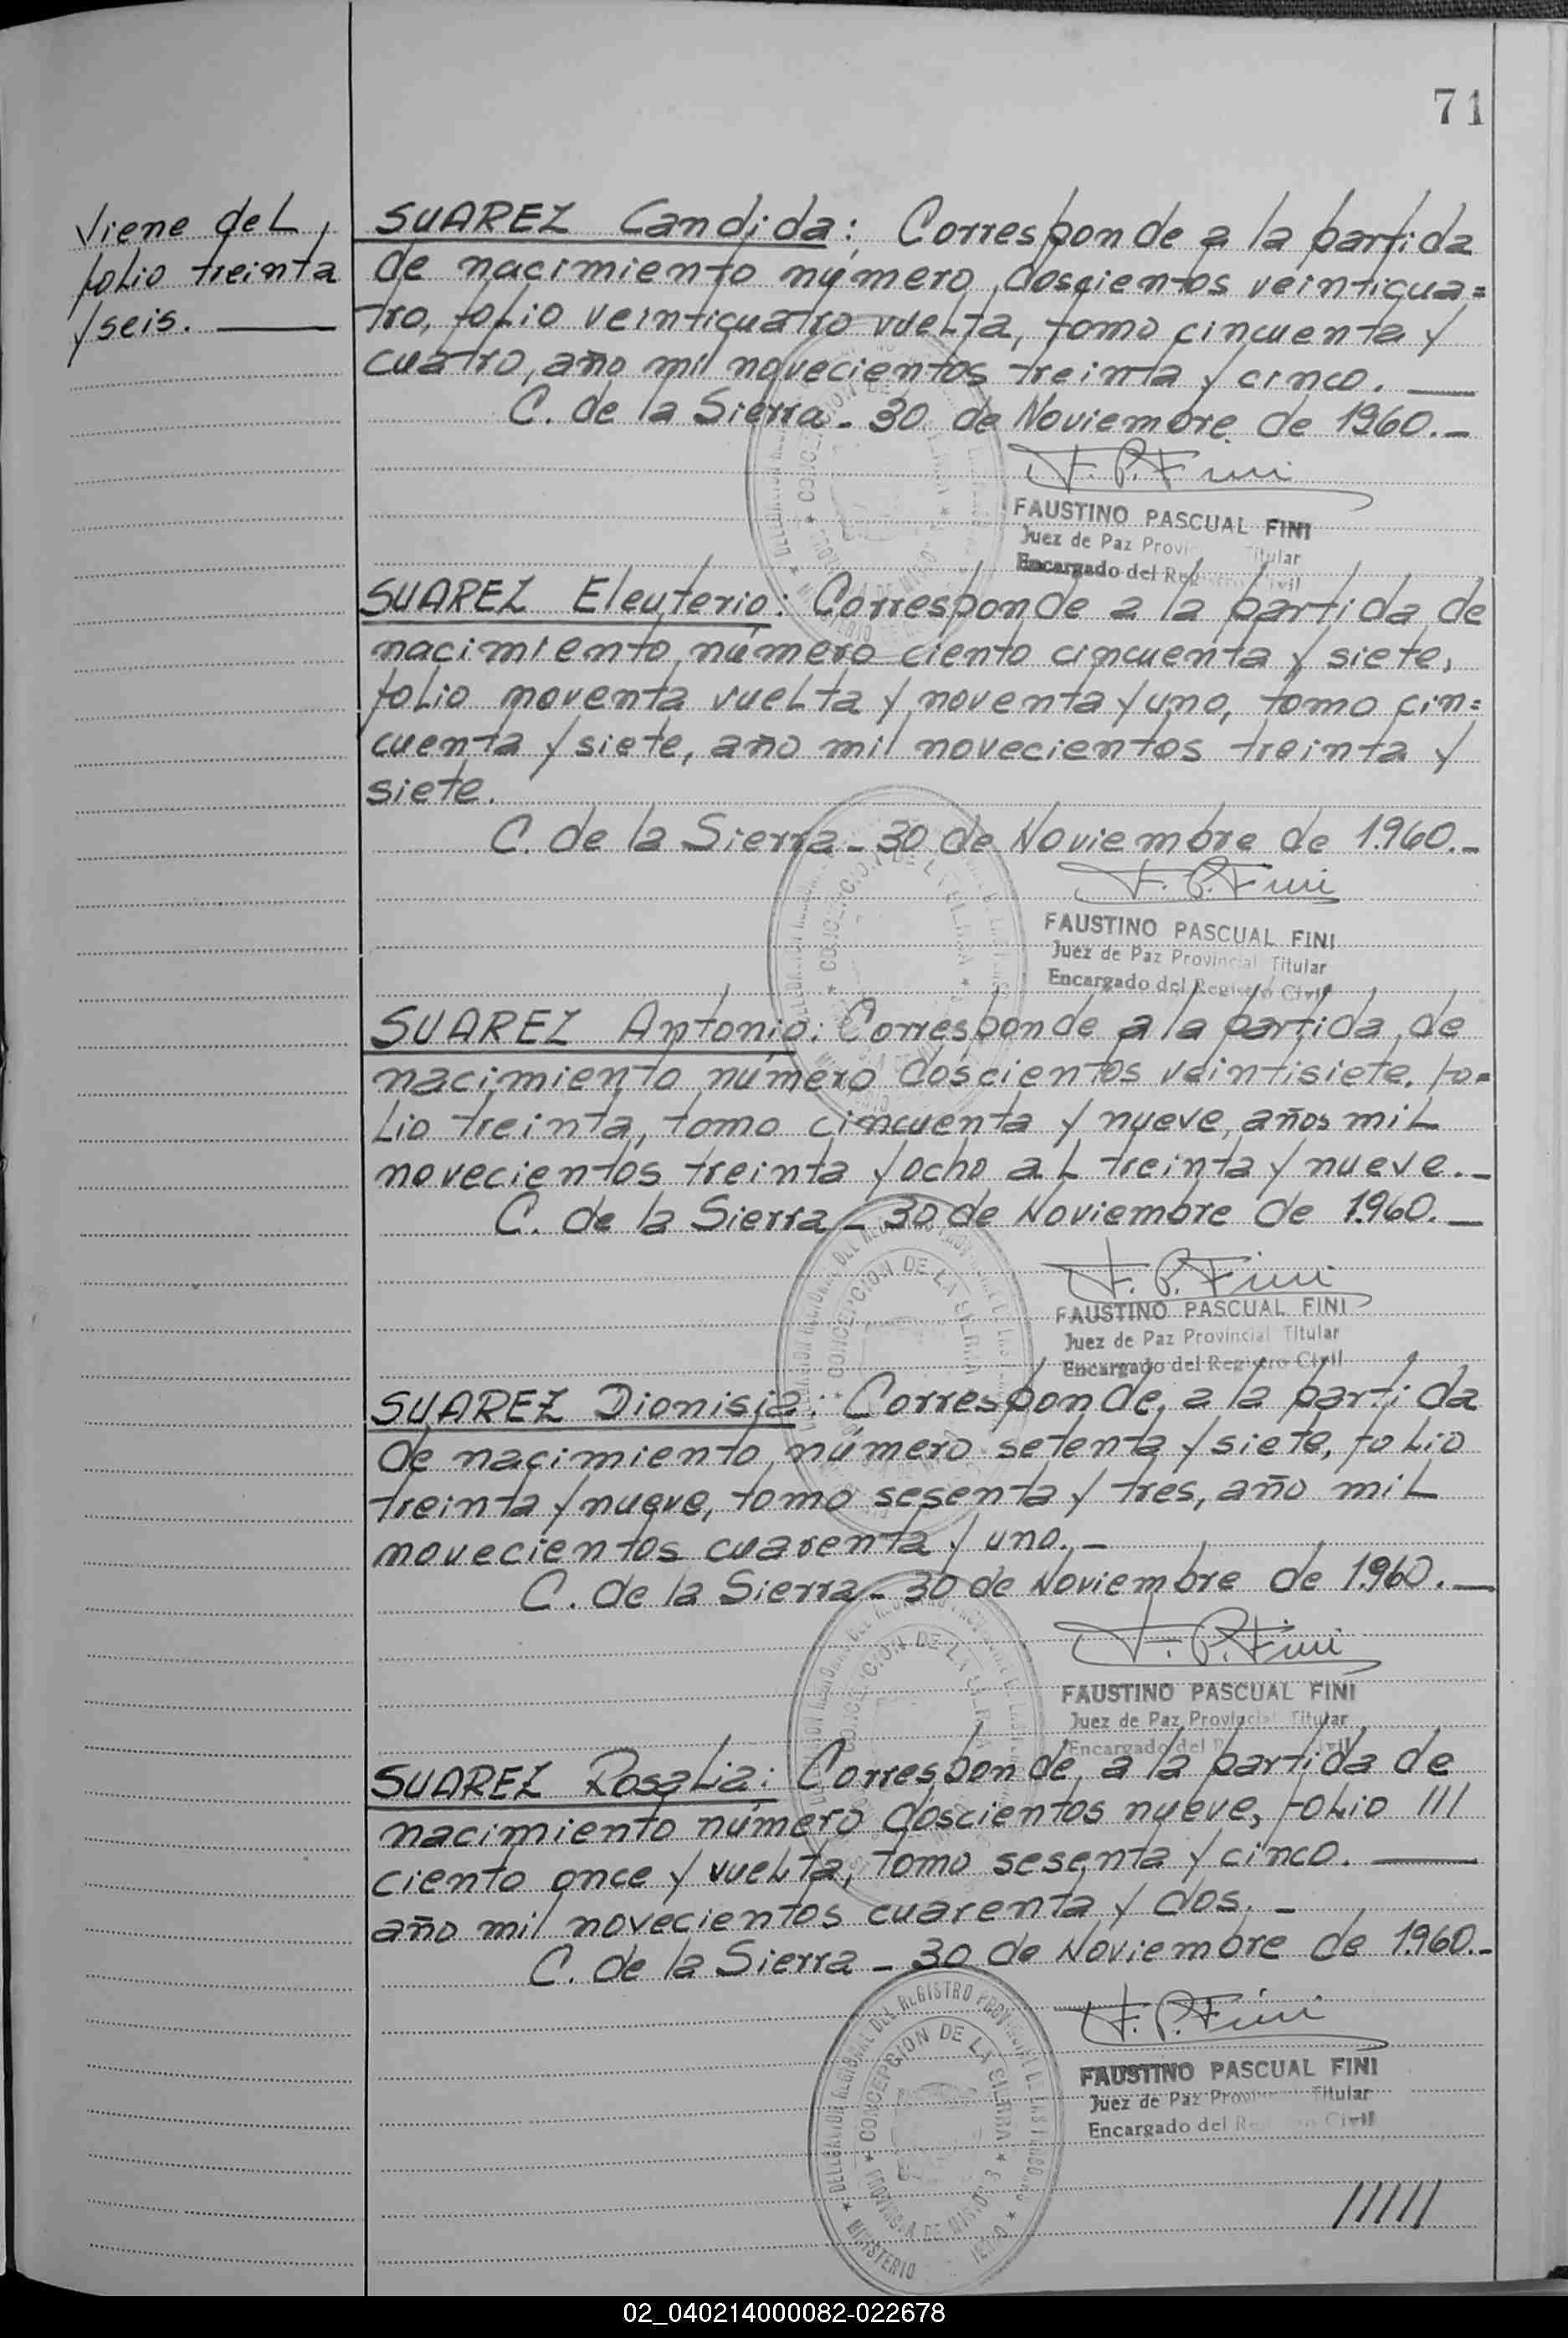 71
Viene del
folio treinta
y seis. ———
SUAREZ Candida: Corresponde a la partida
de nacimiento número doscientos veinticua=
tro, folio veinticuatro vuelta, tomo cincuenta y
cuatro, año mil novecientos treinta y cinco. ——
C. de la Sierra - 30 de Noviembre de 1960.-
F. P. Fini
FAUSTINO PASCUAL FINI
Juez de Paz Titular
Encargado del Registro Civil
SUAREZ Eleuterio: Corresponde a la partida de
nacimiento número ciento cincuenta y siete,
folio noventa vuelta y noventa y uno, tomo cin=
cuenta y siete, año mil novecientos treinta y
siete.
C. de la Sierra - 30 de Noviembre de 1.960.-
F. P. Fini
FAUSTINO PASCUAL FINI
Juez de Paz Provincial Titular
Encargado del Registro Civil
SUAREZ Antonio: Corresponde a la partida de
nacimiento número doscientos veintisiete. fo=
lio treinta, tomo cincuenta y nueve, años mil
novecientos treinta y ocho al treinta y nueve.-
C. de la Sierra - 30 de Noviembre de 1.960. —
F. P. Fini
FAUSTINO PASCUAL FINI
Juez de Paz Provincial Titular
Encargado del Registro Civil
SUAREZ Dionisia: Corresponde a la partida
de nacimiento número setenta y siete, folio
treinta y nueve, tomo sesenta y tres, año mil
novecientos cuarenta y uno.-
C. de la Sierra - 30 de Noviembre de 1.960. —
F. P. Fini
FAUSTINO PASCUAL FINI
Juez de Paz Provincial Titular
Encargado del Civil
SUAREZ Rosalia: Corresponde a la partida de
nacimiento número doscientos nueve, folio 111
ciento once y vuelta, tomo sesenta y cinco. ——
año mil novecientos cuarenta y dos. -
C. de la Sierra - 30 de Noviembre de 1.960.-
F. P. Fini
DELEGACION REGIONAL DEL REGISTRO PROVINCIAL DE LAS PERSONAS
CONCEPCION DE LA SIERRA
PROVINCIA DE MISIONES
MINISTERIO
FAUSTINO PASCUAL FINI
Juez de Paz Titular
Encargado del Civil
//////
02_040214000082-022678